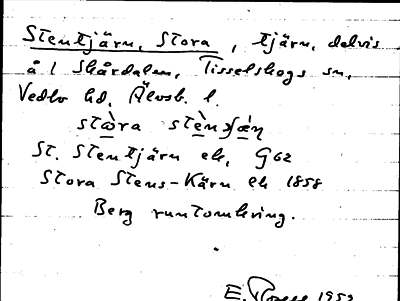 Stentjärn, Stora, tjärn, delvis
å 1 Skårdalen, Tisselskogs sn,
Vedbo hd, Älvsb. l.
stɷ̀ra stèn
St. Stentjärn ek, G62
Stora Stens-Kärn ek 1858
Berg runtomkring.
E. 1953